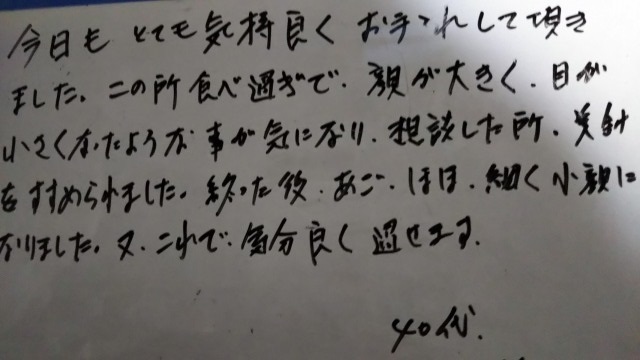 今日もとても気持良くお手入れして頂き
ました。この所食べ過ぎで、顔が大きく、目が
小さくなったような事が気になり、相談した所、美針
をすすめられました。終った後、あご、ほほ、細く小顔に
なりました。又、これで、気分良く過せます。
40代.